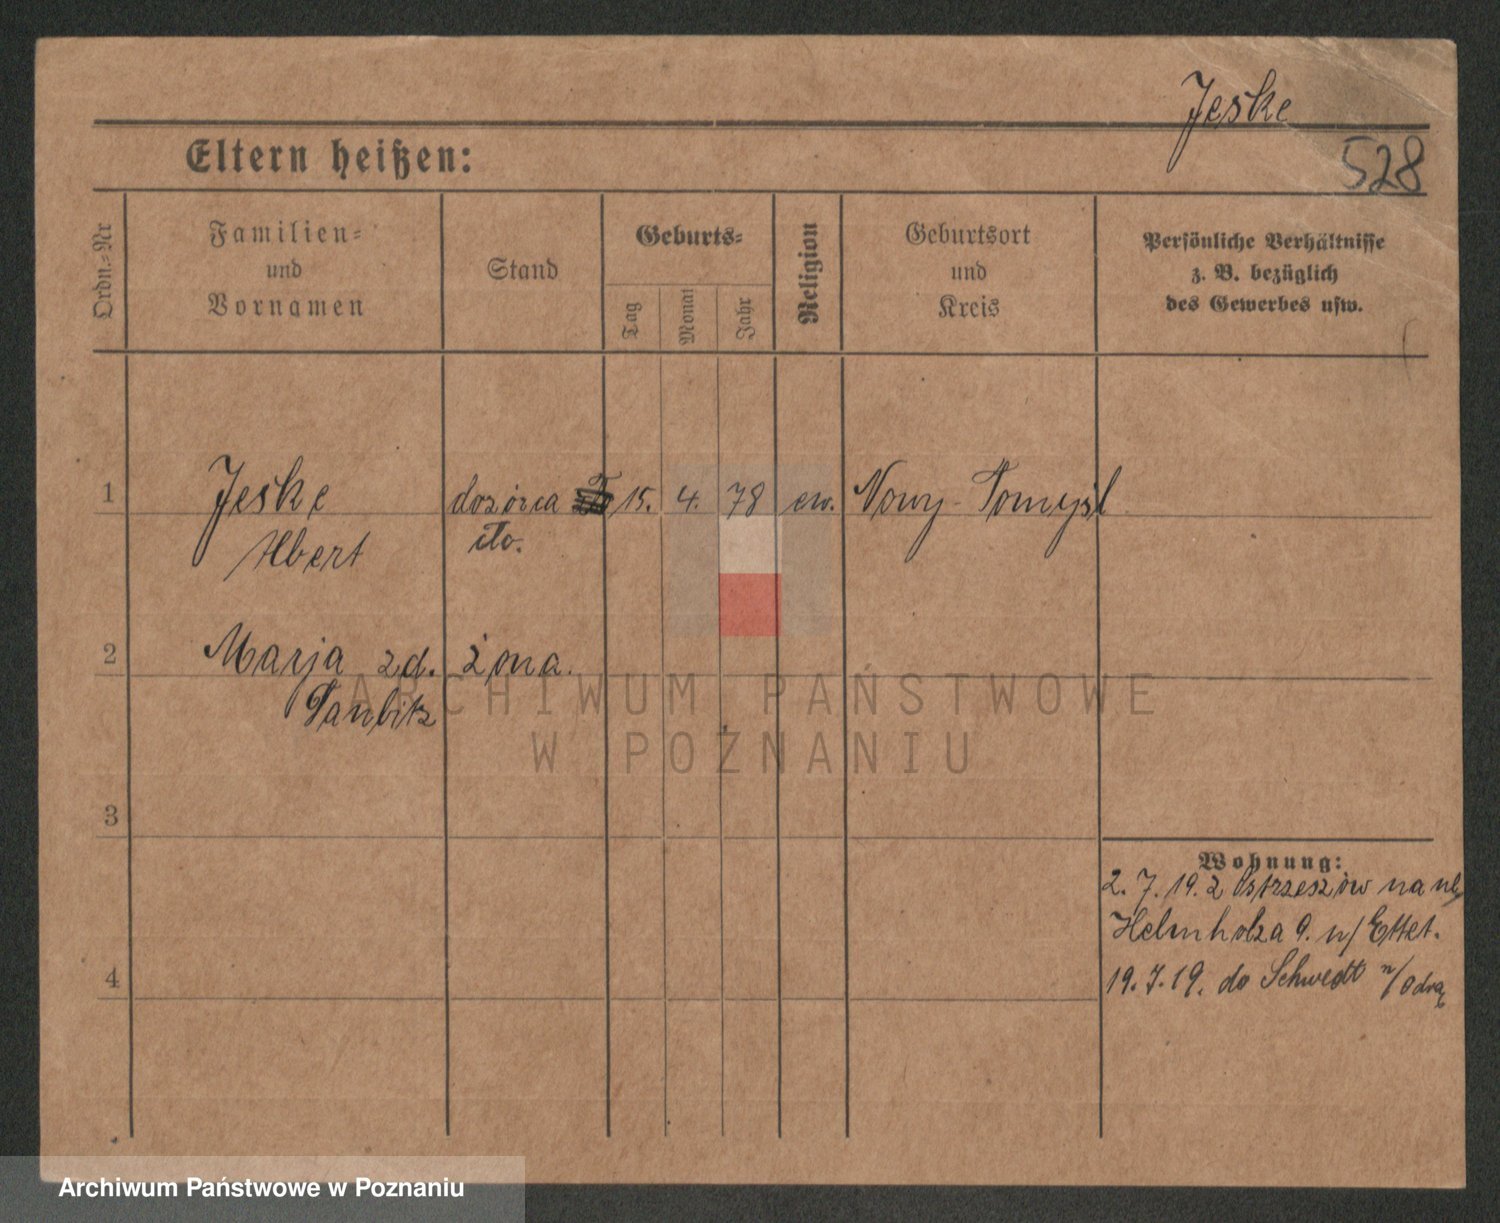 Jeske
528
Eltern heißen:
Ordn.-Nr
Familien-
und
Vornamen
Stand
Geburts-
Tag
Monat
Jahr
Religion
Geburtsort
und
Kreis
Persönliche Verhältnisse
z. B. bezüglich
des Gewerbes usw.
1
Jeske
Albert
dozórca
15. 4. 78 ew. Nowy-Tomyśl
2
Marja zd. żona.
3
Wohnung:
2. 7. 19. z Ostrzeszów na ul.
Helmholza 9.
4
19. 7. 19. do Schwedt n/Odrą
ARCHIWUM PAŃSTWOWE
W POZNANIU
Archiwum Państwowe w Poznaniu